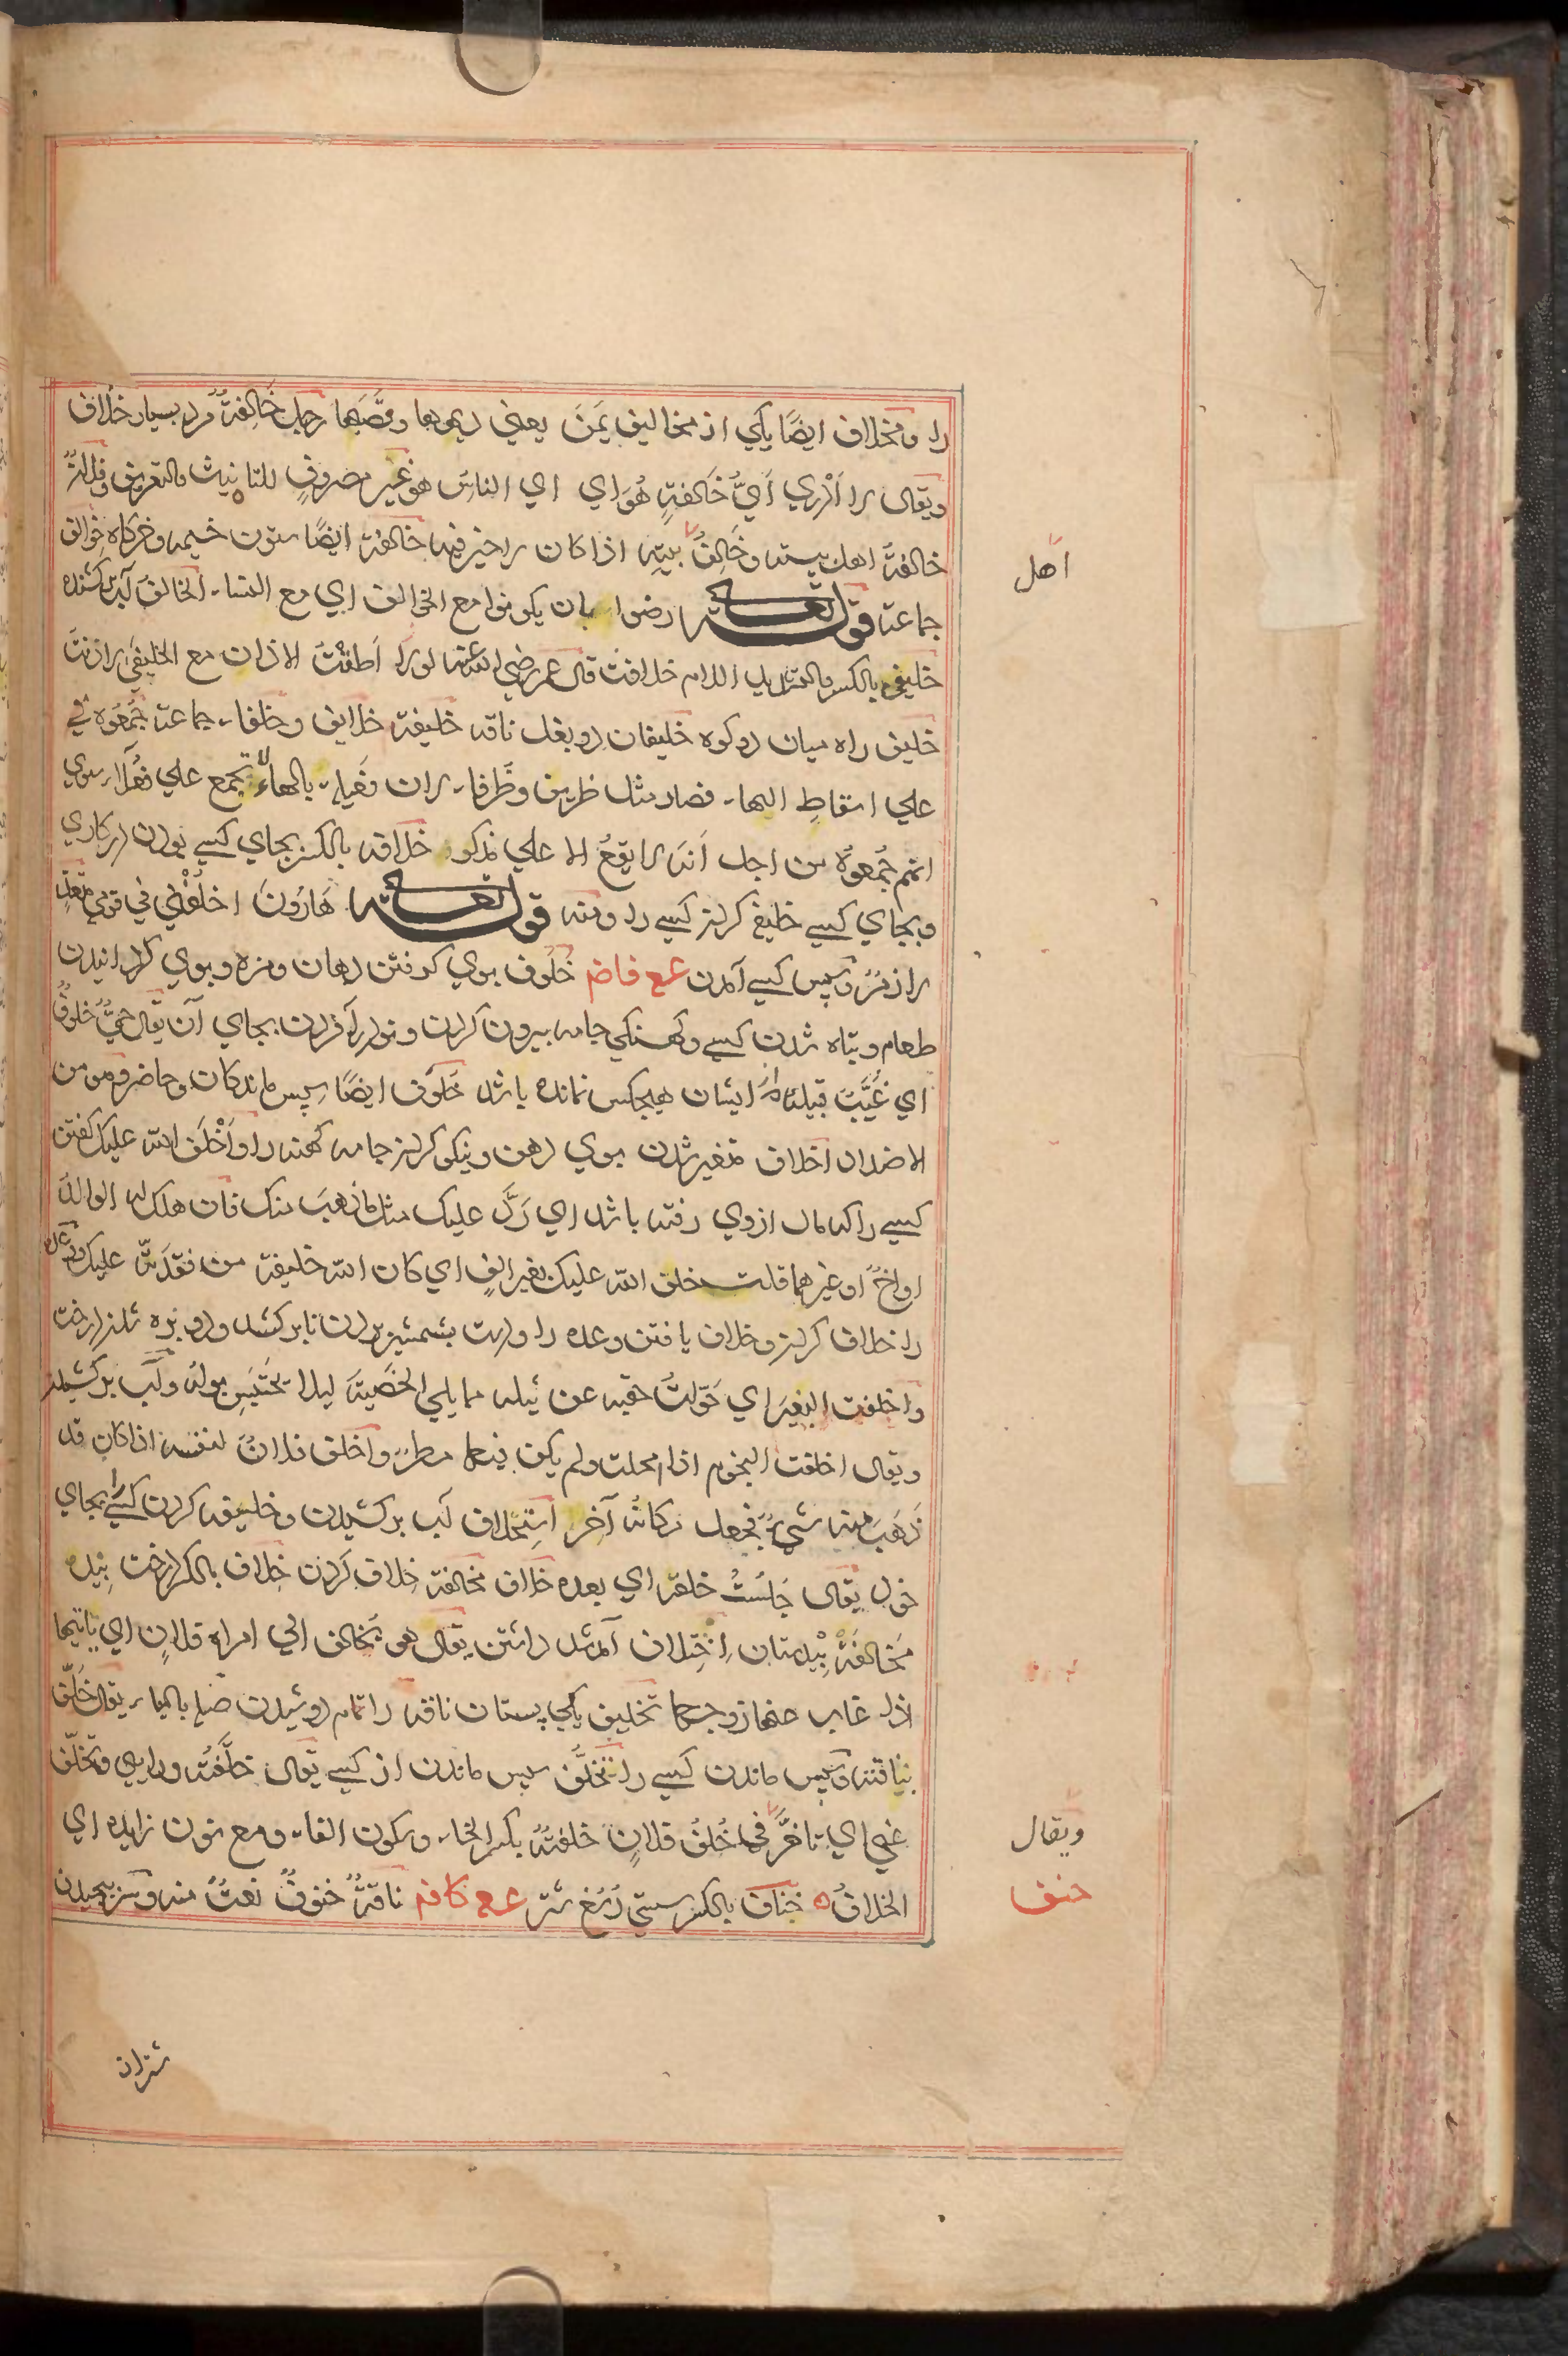 را ومخلاف ایضًا یکي از مخالیف یَمَنَ یعني دیهوها وقصَبَها رجل خَالِفةٌ مرد بسیار خلاف
ویقال لا اَدْري اَيُّ خَالفةٍ هُوَ اي اي الناسِ هو غیر مصروفٍ للتانیث والتعریف وفلانٌ
خالفةُ اهل بیته وخَالِفُ بیتِه اذا کان لا خیر فیه خالفة ایضًا ستون خیمه وخرکاه خوالف
اهل
جماعة قوله تعالى رضوا بان یکونوا مع الخوالف اي مع النساء الخالف آب کشنده
خلیفي بالکسر والتشدید اللام خلافت قال عمر رضي الله عنه لو اَطقْتُ الاذان مع الخلیفي لاذنتُ
خلیف راه میان دو کوه خلیفان دو بغل ناقه خلیفة خلایف وخلفا جماعة جَمَعُوه
علي اسقاطِ الهاء فصار مثل ظریف وظُرفاء لان فعیلة بالهاء لا تجمع علي فُعَلاء سوي
انهم جَمَعوهُ من اجل اَنَه لا یقعُ الا علي مذکر خلافة بالکسر بجاي کسي بودن در کاري
وبجاي کسي خلیفه کردن کسي را ومنه قوله تعالى هَارُونَ اخلُفْنِي في قومي
لازم وسپس کسي آمدن عع فاضم خُلوف بوي کرفتن دهان ومزه وبوي کردانیدن
طعام وتباه شدن کسي وکهنکي جامه بیرون کردن ونو درآوردن بجاي آن یقال حَيٌّ خلوفٌ
اي غُیَّبٌ قبیله که از ایشان هیچکس نمانده باشد خَلوف ایضًا سپس ماندکان وحاضر وهو من
الاضداد اخلاف متغیر شدن بوي دهن ونیکو کردن جامه کهنه را واَخْلَفَ الله علیک کفتن
کسي را که مال ازوي رفته باشد اي رَدَّ علیک مثل ما ذهبَ منک فان هلک له الوالدُ
او اخٌ او غیرهما قلت خلف الله علیک بغیر الفٍ اي کان الله خلیفة من فقدتَه علیک
را خلاف کردن وخلاف یافتن وعده را ودست بشمشیر بردن تا برکشد وبرو بزه شدن درخت
واخلفت البعیرَ اي حَوّلتُ حقبه عن ثیله مما یلي الخصیةَ لیلا یحتبس بولُه وآب برکشیدن
ویقال اخلفت النجوم اذا امحلت ولم یکن فیها مطر واخلف فلانٌ لنفسه اذا کان قد
ذَهَبَ منه شيءٌ فجعل مکانه آخر استخلاف آب برکشیدن وخلیفه کردن کسي را بجاي
خود یقال جَلَسْتُ خلفه اي بعده خلاف مخالفة خِلاف کردن خِلاف بالکسر درخت بیده
مَخَالفَة بِیْدستان اِخْتِلاف آمدشد داشتن یقال هو یُخالف الي امراة فلانٍ اي یاتیها
اذا غاب عنها زوجها تخلیف یکي پستان ناقه را تمام دوشیدن صله بالباء یقال خَلّفَ
بناقته وسپس ماندن کسي را تخَلُّف سپس ماندن از کسي یقال خلَّفتُه ورایي وتَخَلّف
عني اي تاخّرَ في خُلُفُ فلانٍ خلفنة بکسر الخاء وسکون الفاء ومع نون زایده اي
ویقال
الخلافُ خِناف بالکسر سستي اُرُنغ شتر عع کافتح ناقةٌ خنوفٌ نعتٌ منه وسرپیچیدن
خنف
شتران